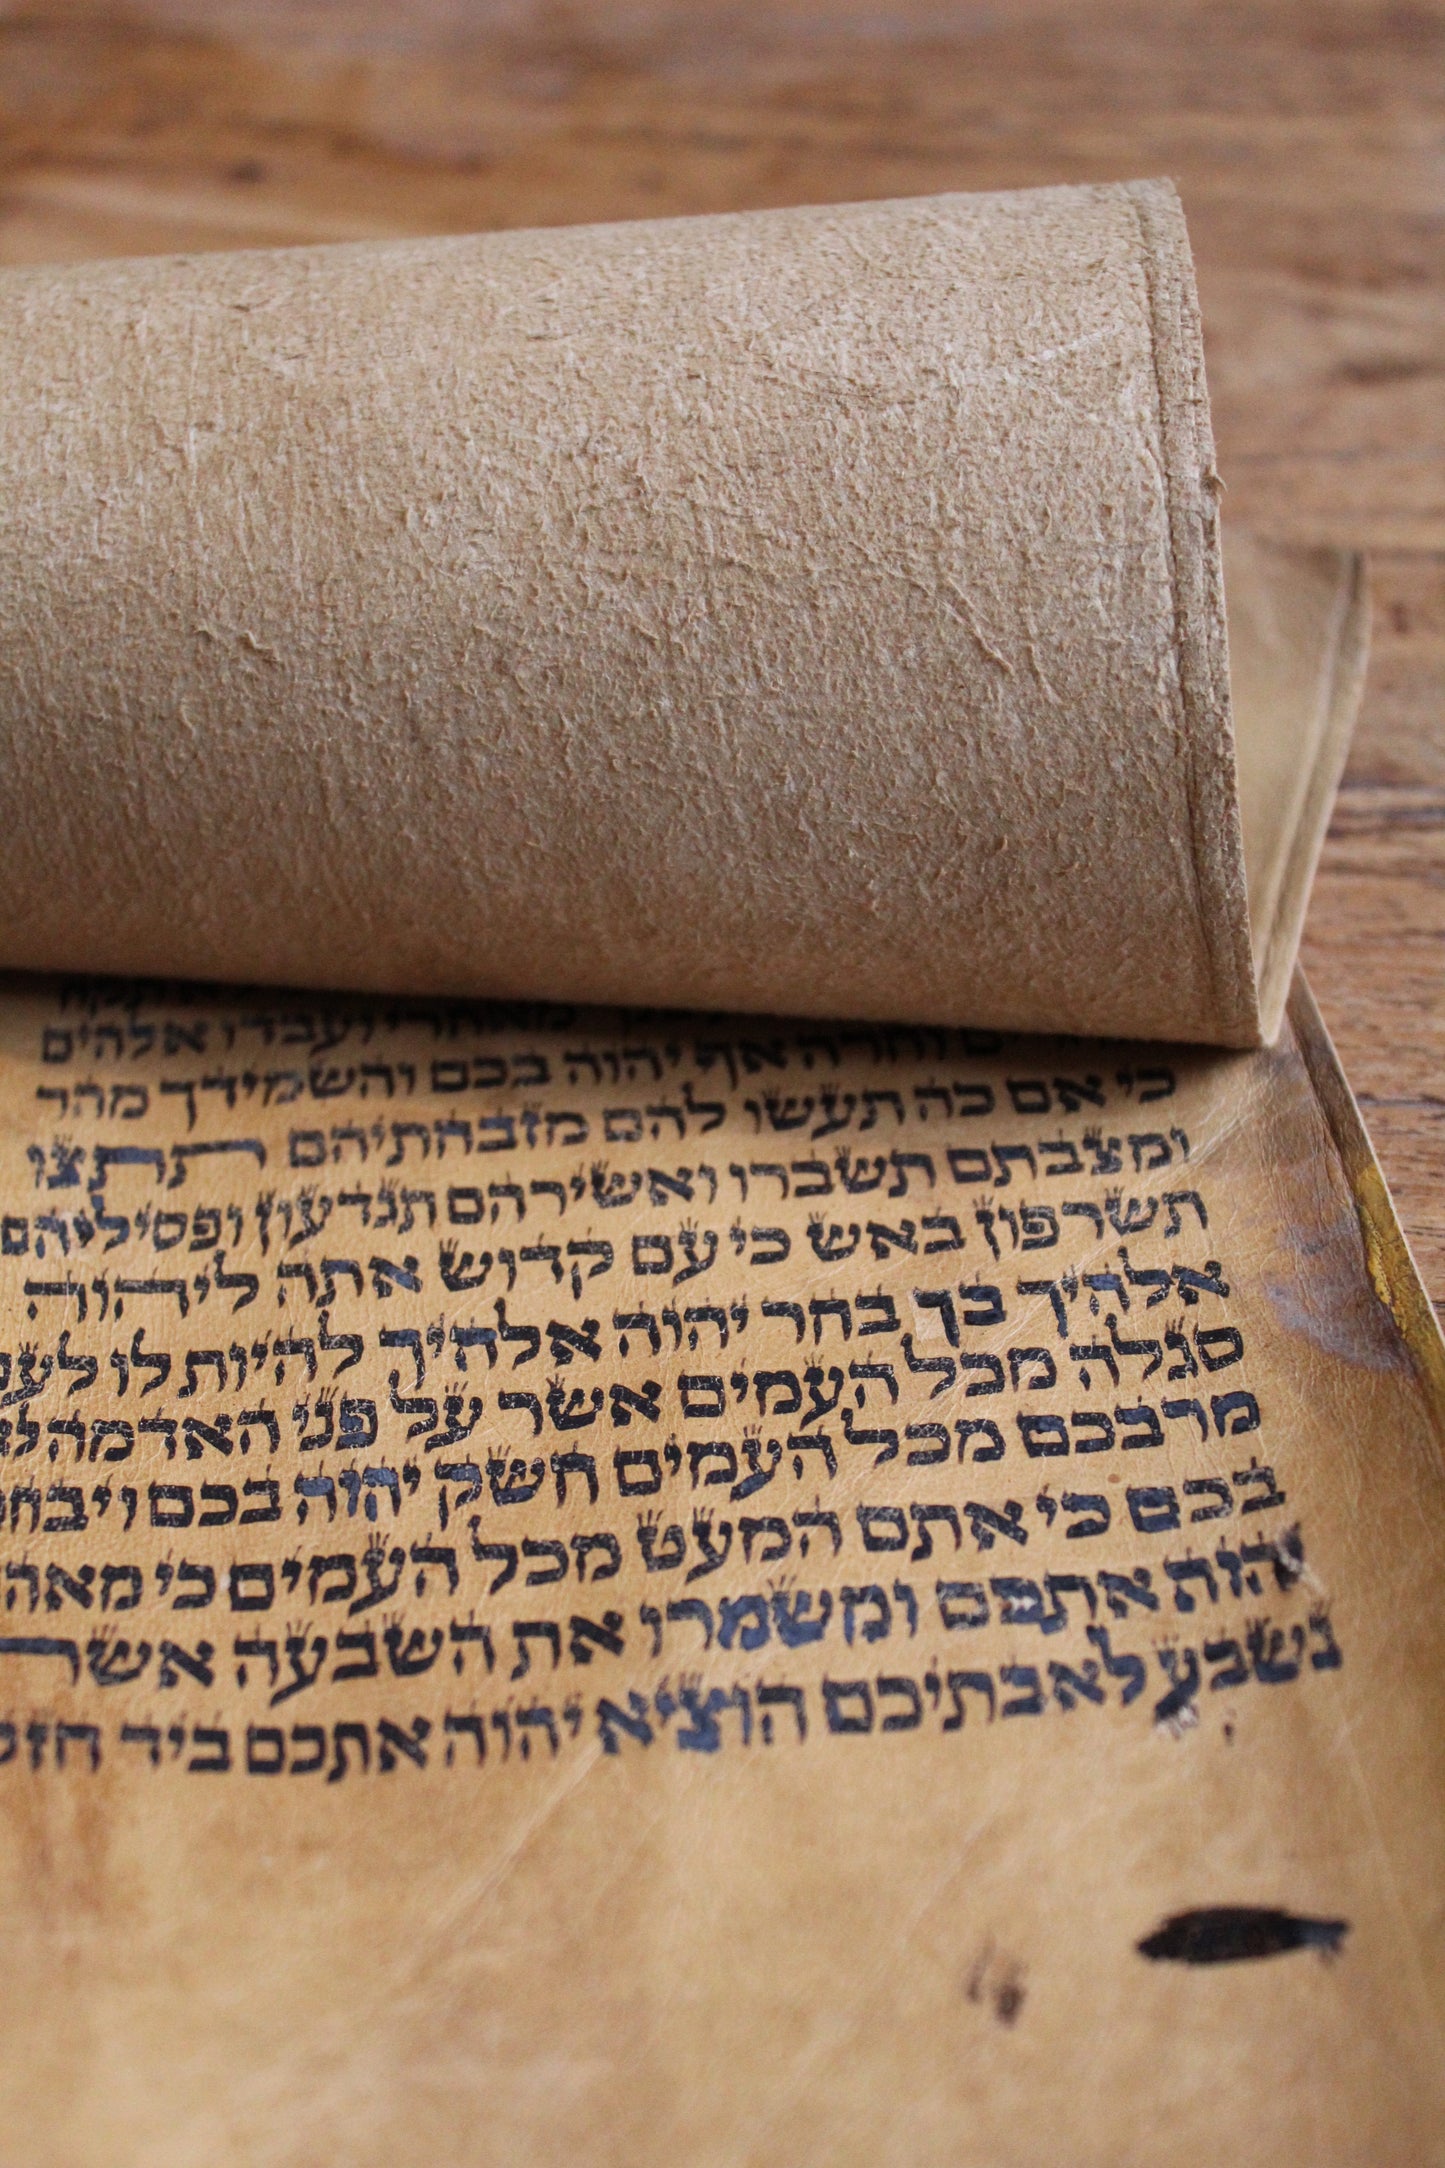 מאחרי ועבדו אלהים
וחרה אף יהוה בכם והשמידך מהר
כי אם כה תעשו להם מזבחתיהם תתצו
ומצבתם תשברו ואשירהם תגדעון ופסיליהם
תשרפון באש כי עם קדוש אתה ליהוה
אלהיך בך בחר יהוה אלהיך להיות לו לעם
סגלה מכל העמים אשר על פני האדמה לו
מרבכם מכל העמים חשק יהוה בכם ויבחר
בכם כי אתם המעט מכל העמים כי מאה
הוה אתכם ומשמרו את השבעה אשר
נשבע לאבתיכם הוציא יהוה אתכם ביד חזק